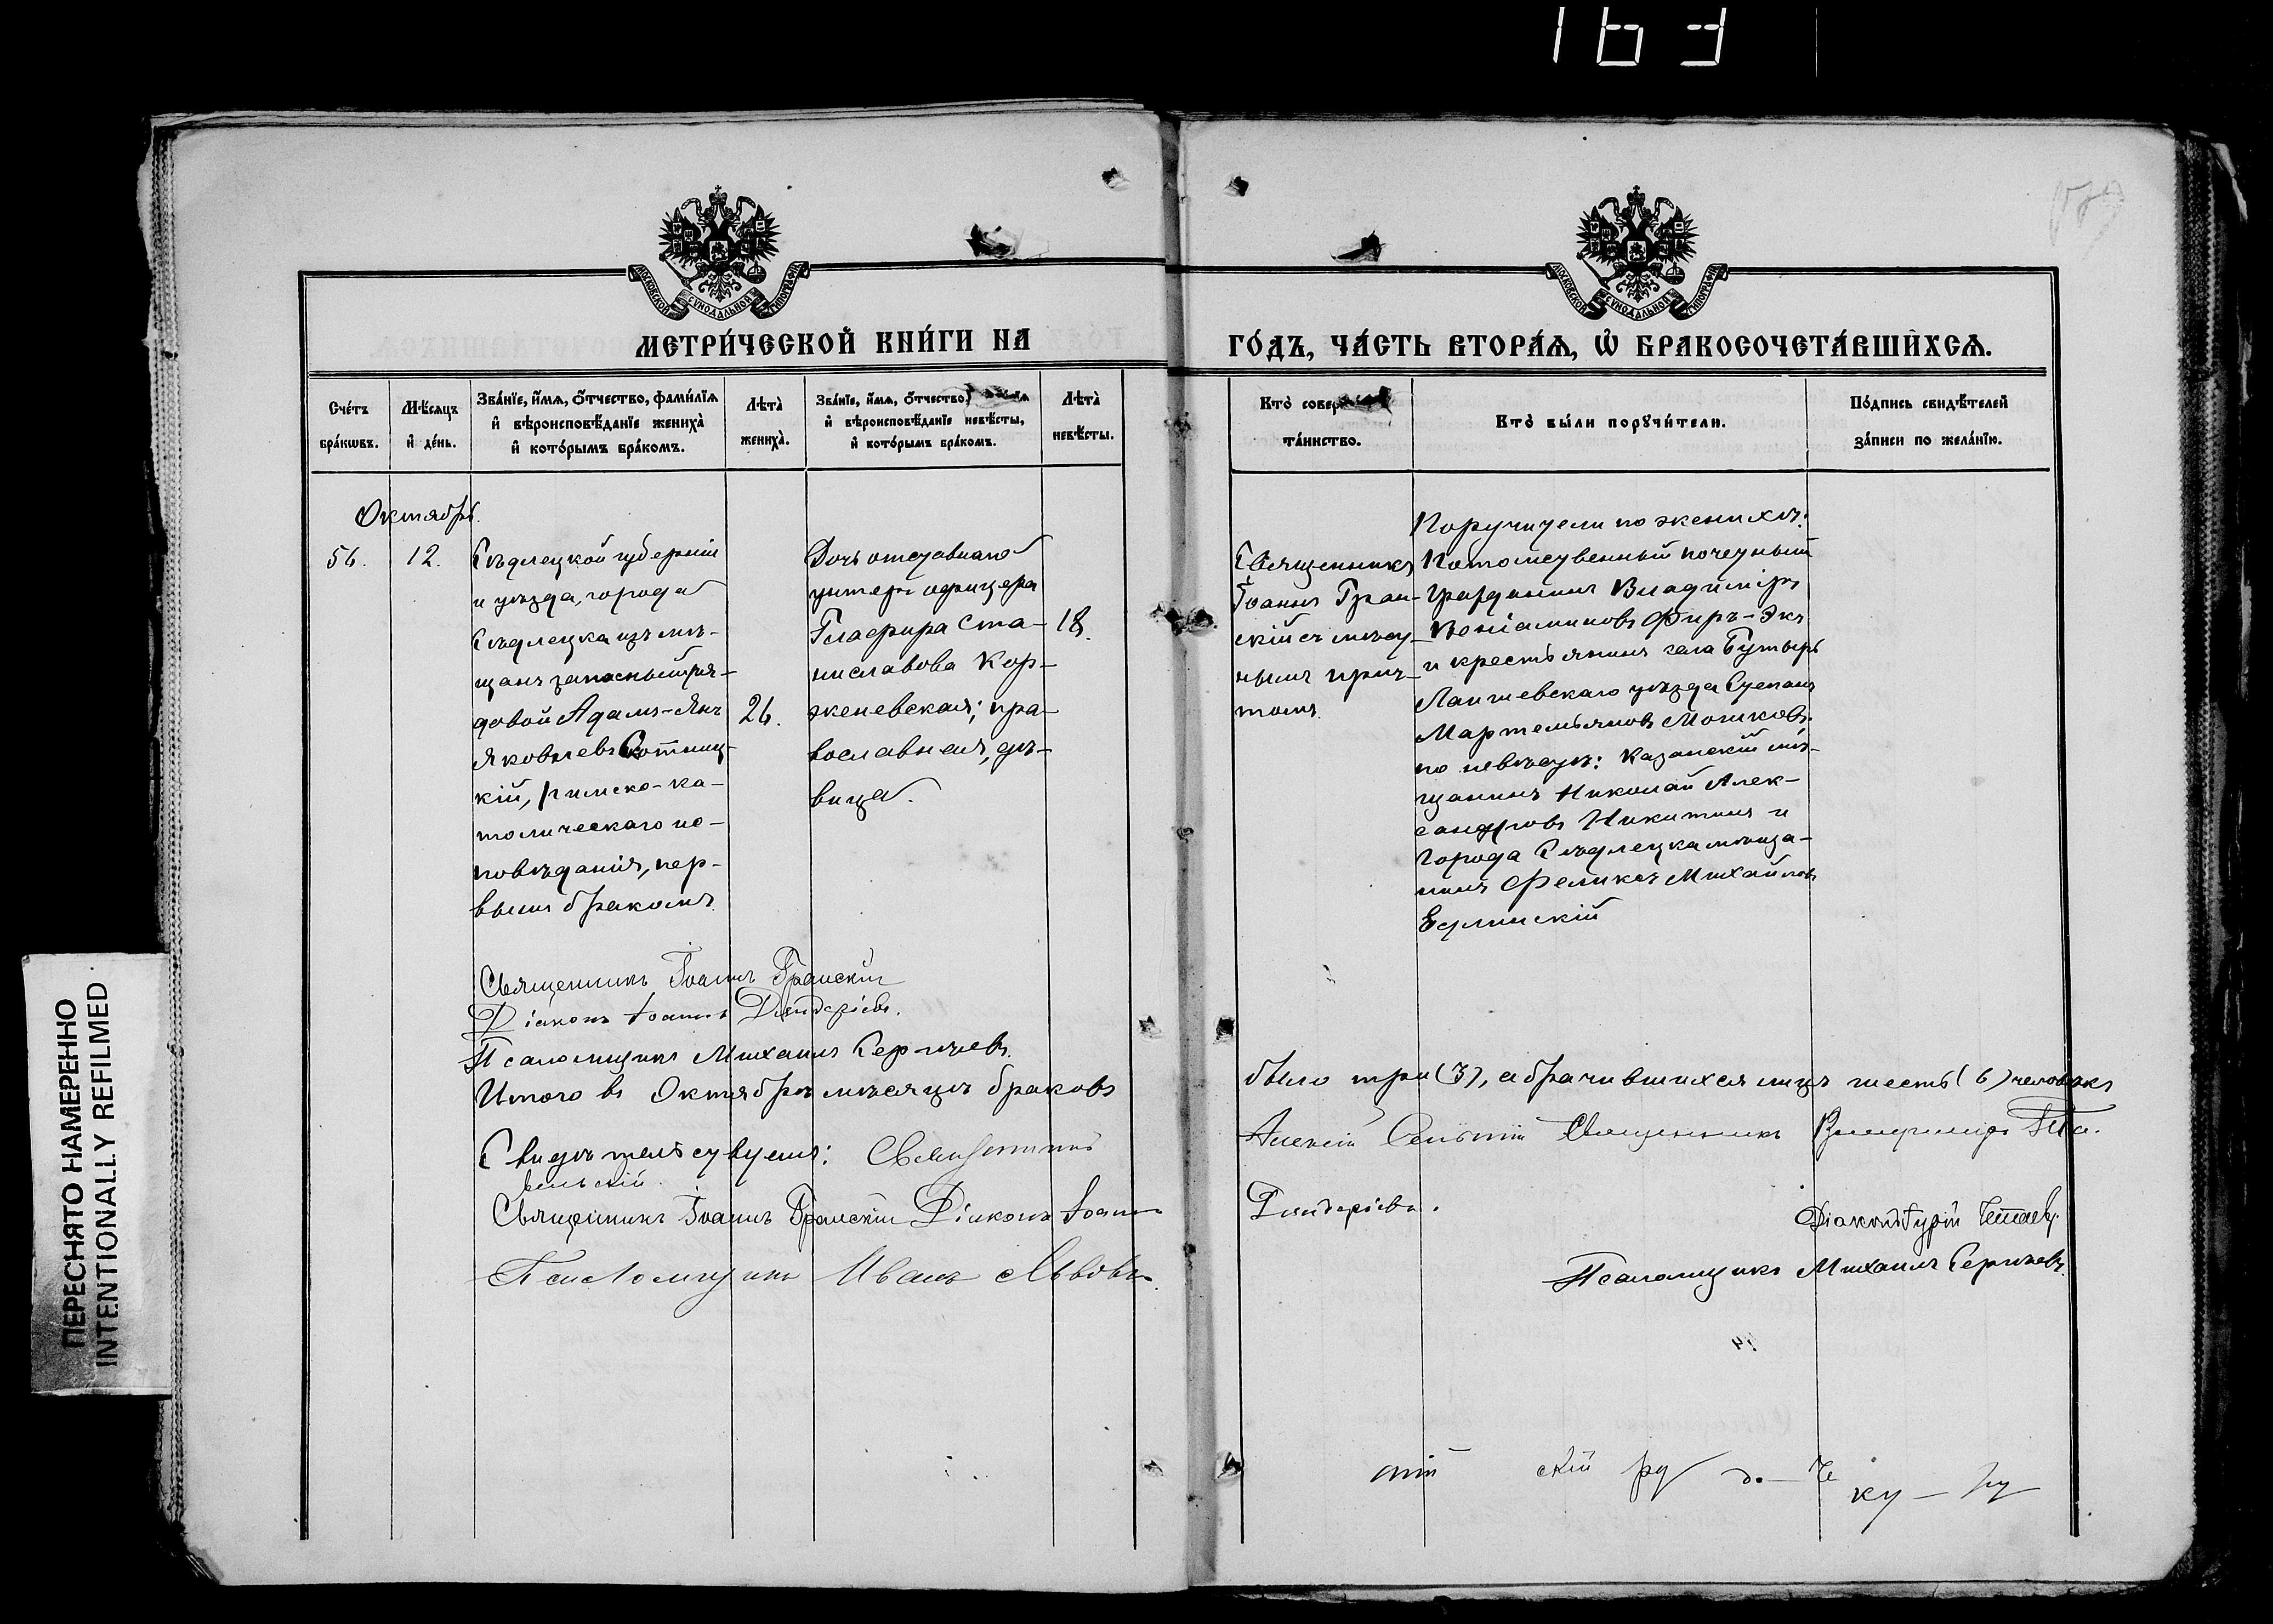 163
МОСКОВСКОЙ СУНОДАЛЬНОЙ ТИПОГРАФІИ
МОСКОВСКОЙ СУНОДАЛЬНОЙ ТИПОГРАФІИ
МЕТРИ́ЧЕСКОЙ КНИ́ГИ НА
ГО́ДЪ, ЧА́СТЬ ВТОРА́Ѧ, Ѡ БРАКОСОЧЕТА́ВШИХСѦ.
Сче́тъ бра́кѡвъ.
Мѣ́сѧцъ и҆ де́нь.
Зва́нїе, и҆́мѧ, о҆́тчество, фами́лїѧ и҆ вѣроисповѣ́данїе жениха̀ и҆ кото́рымъ бра́комъ.
Лѣта̀ жениха̀.
Зва́нїе, и҆́мѧ, о҆́тчество, и҆ вѣроисповѣ́данїе невѣ́сты, и҆ кото́рымъ бра́комъ.
Лѣта̀ невѣ́сты.
Кто̀ та́инство.
Кто̀ бы́ли порꙋчи́тели.
По́дпись свидѣ́телей за́писи по жела́нїю.
Октябрь.
56.
12.
Сѣдлецкой губерніи
и уѣзда, города
Сѣдлецка изъ мѣ-
щанъ запасный ря-
довой Адамъ-Янъ
Яковлевъ Сотниц-
кій, римско-ка-
толическаго ис-
повѣданія, пер-
вымъ бракомъ
26.
Дочь отставнаго
унтеръ офицера
Глафира Ста-
ниславова Кор-
женевская; пра-
вославная, дѣ-
вица.
18.
Священникъ
Іоаннъ Гран-
скій съ мѣст-
нымъ прич-
томъ.
Поручители по женихѣ:
Потомственный почетный
гражданинъ Владиміръ
Веніаминовъ Фиръ-Экъ
и крестьянинъ села Бутырь
Лаишевскаго уѣзда Степанъ
Мартемьяновъ Мошковъ.
по невѣстѣ: Казанскій мѣ-
щанинъ Николай Алек-
сандровъ Никитинъ и
города Сѣдлецка мѣща-
нинъ Феликсъ Михайловъ
Едлинскій
Священникъ Іоаннъ Гранскій
Діаконъ Іоаннъ
Псаломщикъ Михаилъ Сергѣевъ.
Итого въ Октябрѣ мѣсяцѣ браковъ
было три (3), а брачившихся лицъ шесть (6) человѣкъ
Свидѣтельствуемъ: Священникъ
Алексій Священникъ
Священникъ Іоаннъ Гранскій Діаконъ Іоаннъ
Діаконъ Гурій
Псаломщикъ Иванъ Львовъ.
Псаломщикъ Михаилъ Сергѣевъ.
скій
ку —
ПЕРЕСНЯТО НАМЕРЕННО
INTENTIONALLY REFILMED